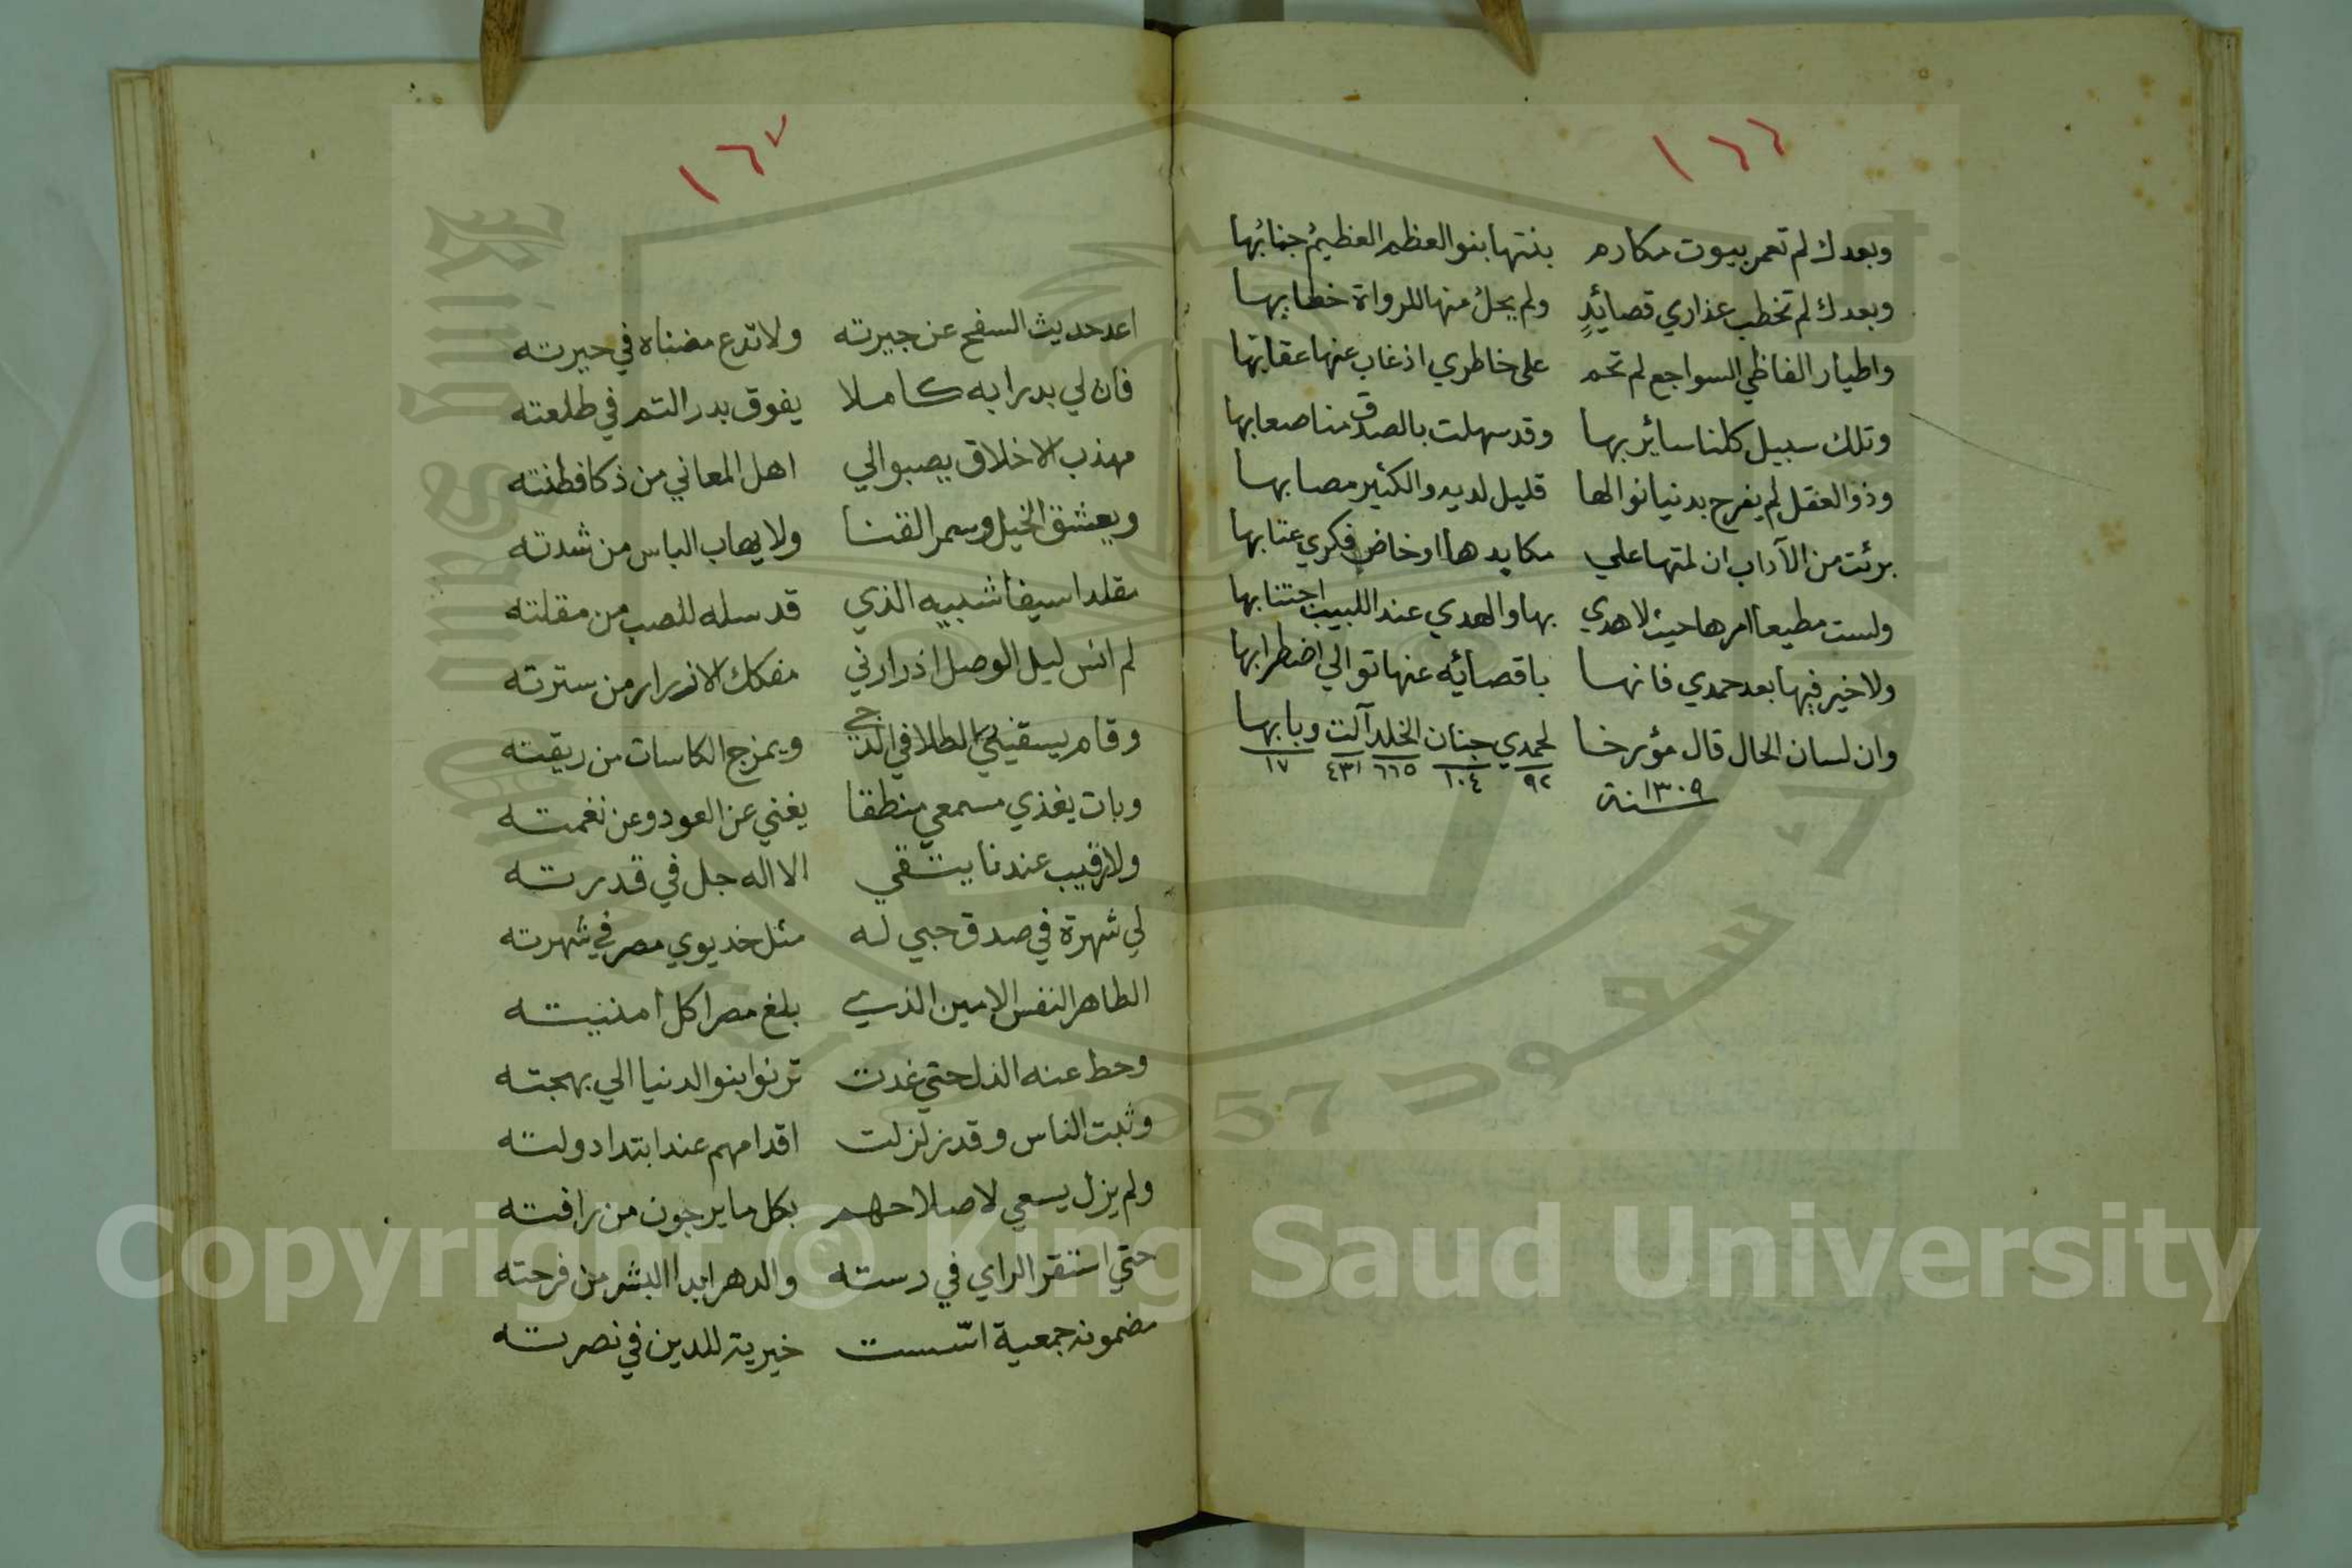 ١٦٦
وبعدك لم تعمر بيوت مكارم بنتها بنو العظم العظيم جنابُها
وبعدك لم تخطب عذاري قصائدٍ ولم يحلُ منها للرواة خطابها
واطيار الفاظي السواجع لم تحم على خاطري اذ غاب عنها عقابها
وتلك سبيل كلنا سائر بها وقد سهلت بالصدق منا صعابها
وذو العقل لم يفرح بدنيا نوالها قليل لديه والكثير مصابها
برئت من الآداب ان لمتها علي مكايدها او خاض فكري عتابها
ولست مطيعا امرها حيث لا هدي بها والهدي عند اللبيب اجتنابها
ولا خير فيها بعد حمدي فانها باقصائه عنها توالي اضطرابها
وان لسان الحال قال مؤرخا لحمدي جنان الخلد آلت وبابها
٩٢ ١٠٤ ٦٦٥ ٤٣١ ١٧
سنة ١٣٠٩
١٦٧
اعد حديث السفح عن جيرته ولا تدع مضناه في حيرته
فان لي بدرا به كاملا يفوق بدر التم في طلعته
مهذب الاخلاق يصبوالي اهل المعاني من ذكا فطنته
ويعشق الخيل وسمر القنا ولا يهاب الباس من شدته
مقلدا سيفا شبيه الذي قد سله للصب من مقلته
لم انس ليل الوصل اذ زارني مفكك الازرار من سترته
وقام يسقيني الطلا في الدجي ويمزج الكاسات من ريقته
وبات يغذي مسمعي منطقا يغني عن العود وعن نغمته
ولا رقيب عندنا يتقي الا اله جل في قدرته
لي شهرة في صدق حبي له مثل خديوي مصر في شهرته
الطاهر النفس الامين الذي بلغ مصرا كل امنيته
وحط عنه الذل حتي غدت ترنوا بنو الدنيا الي بهجته
وثبت الناس وقد زلزلت اقدامهم عند ابتدا دولته
ولم يزل يسعي لاصلاحهم بكل ما يرجون من رافته
حتي استقر الراي في دسته والدهر ابدا البشر من فرحته
مضمونه جمعية اسّست خيرية للدين في نصرته
Copyright © King Saud University
1957